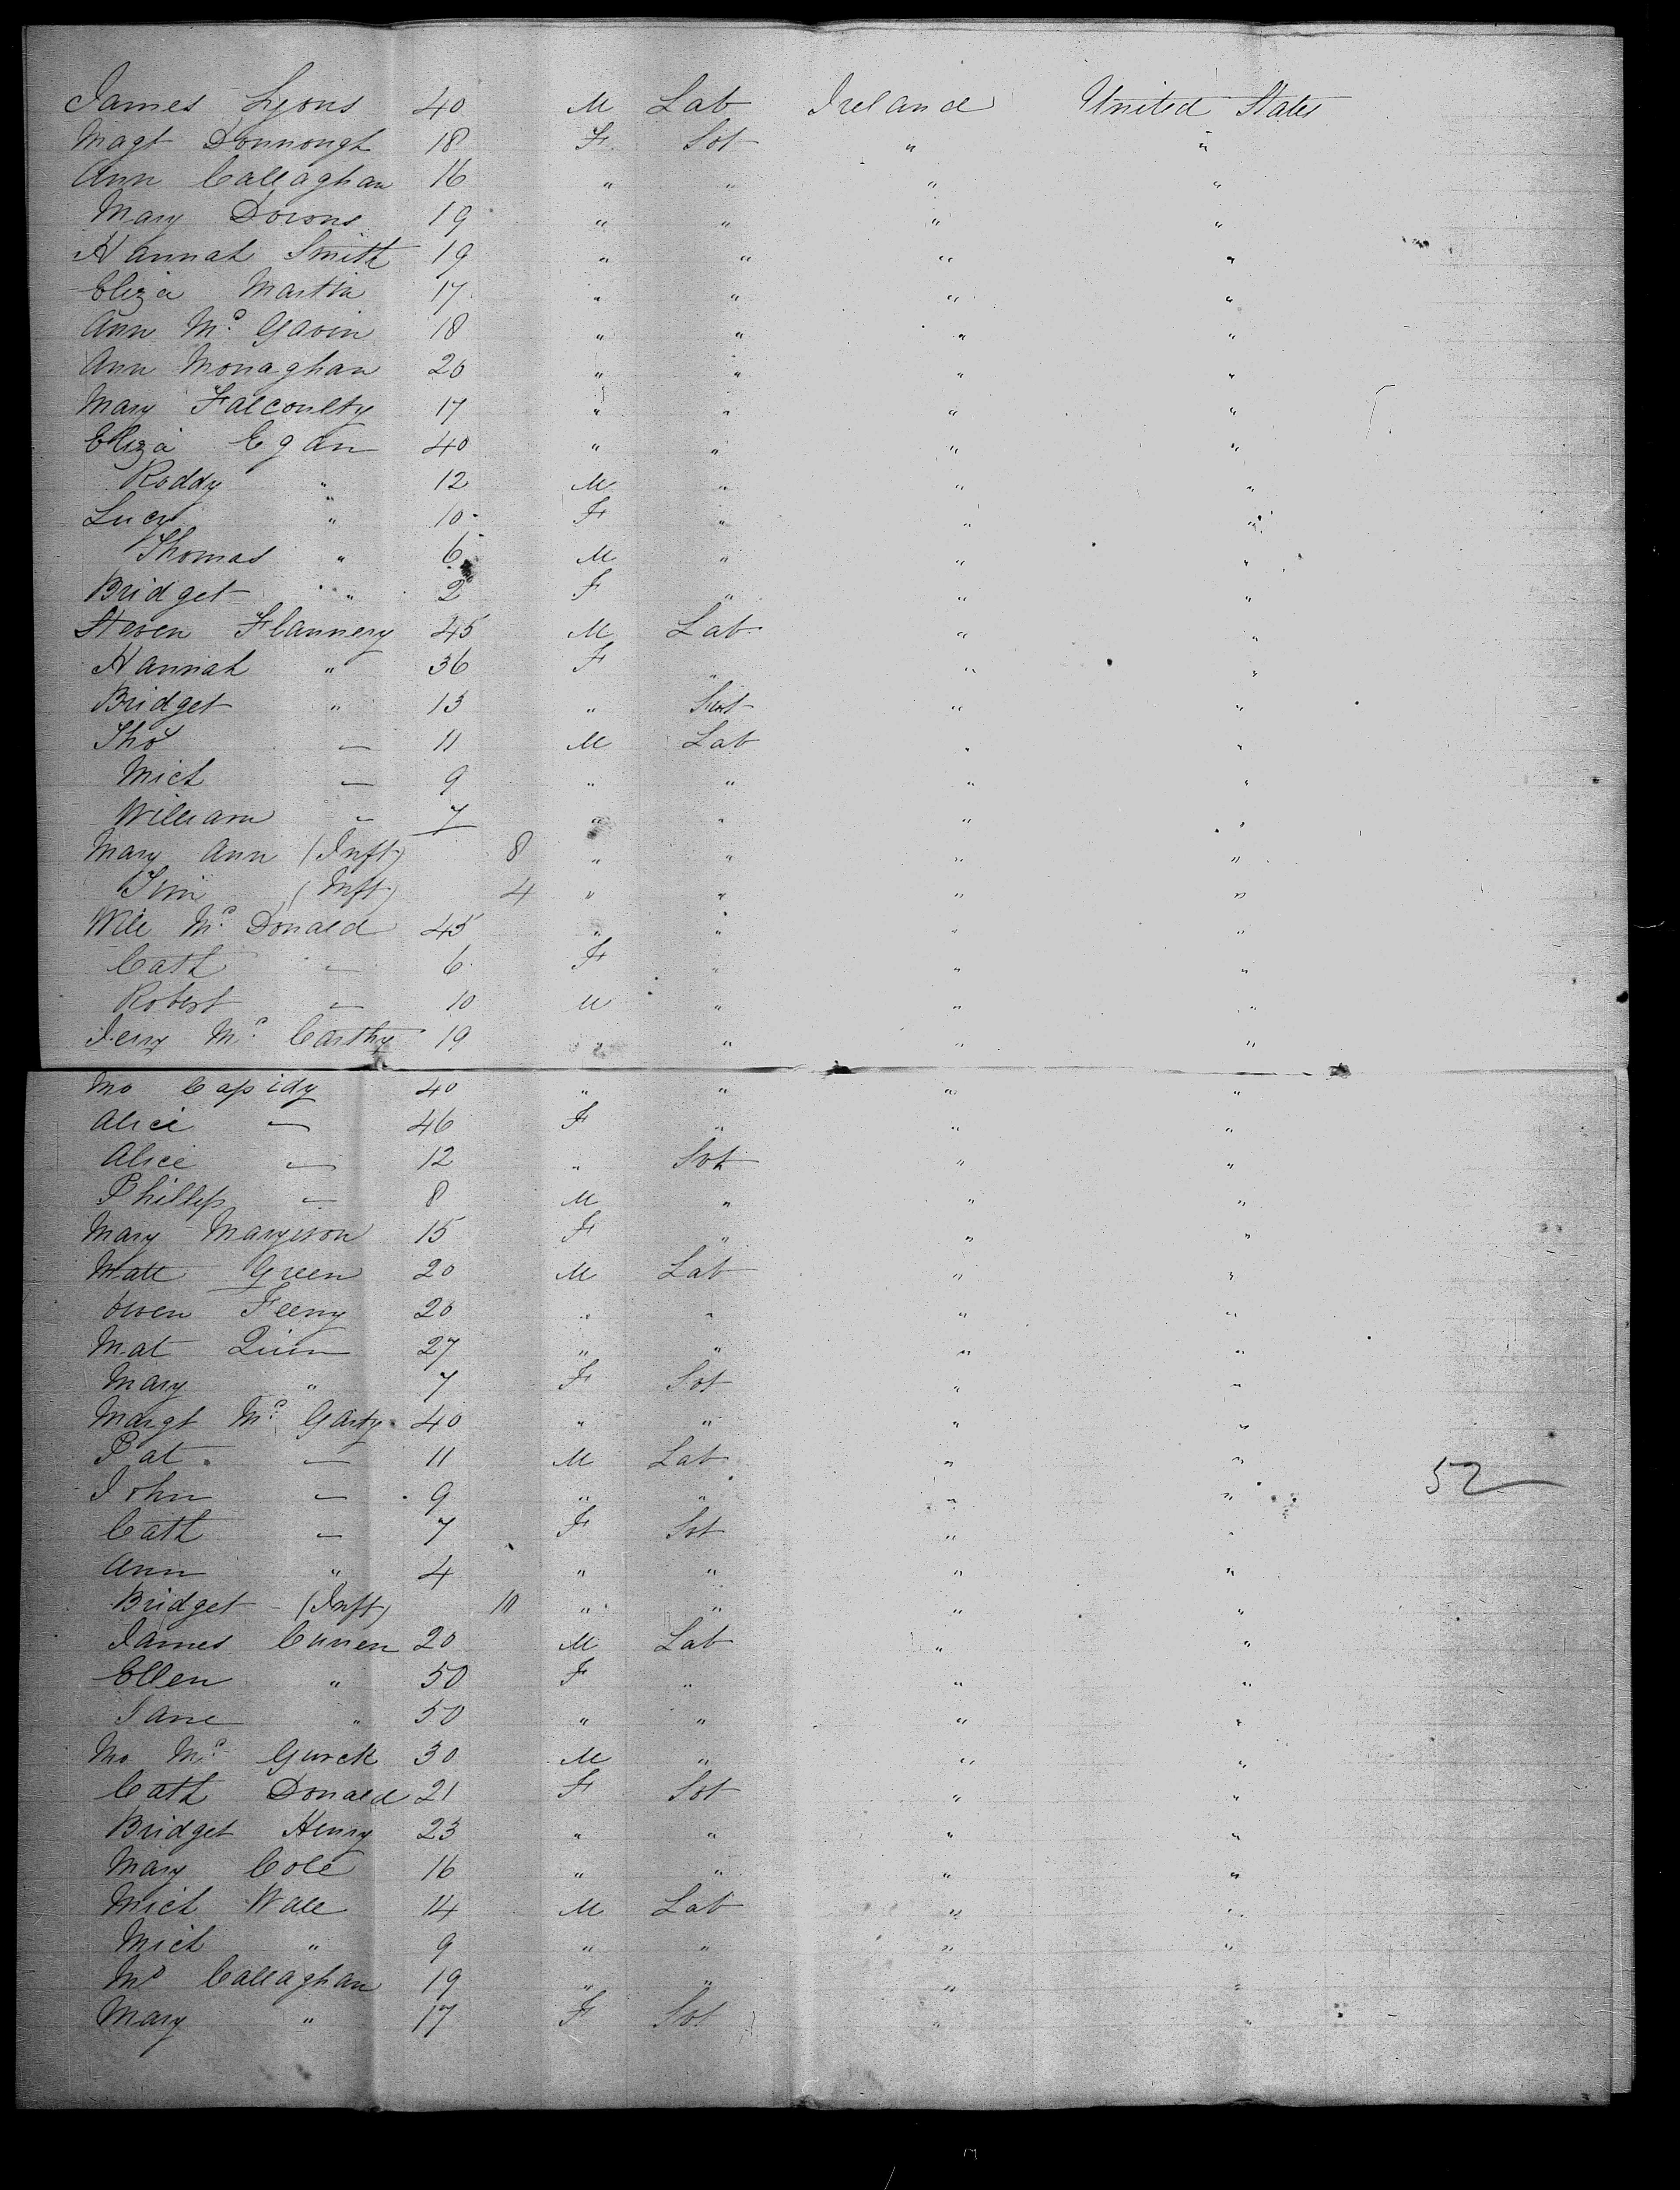 James Lyons 40 M Lab Ireland United States
Magt Donnongh 18 F Svt " "
Ann Callaghan 16 " " " "
Mary Downs 19 " " " "
Hannah Smith 19 " " " "
Eliza Martin 17 " " " "
Ann Mc Gavin 18 " " " "
Ann Monaghan 20 " " " "
Mary Falcoulty 17 " " " "
Eliza Egan 40 " " " "
Roddy " 12 M " " "
Lucy " 10 F " " "
Thomas " 6 M " " "
Bridget " 2 F " " "
Steven Flannery 45 M Lab " "
Hannah " 36 F " " "
Bridget " 13 " Svt " "
Thos — 11 M Lab " "
Mich — 9 " " " "
William " 7 " " " "
Mary Ann (Inft) 8 " " " "
Tim (Inft) 4 " " " "
Will Mc Donald 45 " " " "
Cath — 6 F " " "
Robert — 10 M " " "
Jerry Mc Carthy 19 " " " "
Mo Cassidy 40 " " " "
Alice — 46 F " " "
Alice — 12 " Svt " "
Phillip — 8 M " " "
Mary Maryison 15 F " " "
Matt Green 20 M Lab " "
Owen Feeny 20 " " " "
Mat Quin 27 " " " "
Mary " 7 F Svt " "
Margt Mc Garty 40 " " " "
Pat — 11 M Lab " "
John — 9 " " " " 52
Cath — 7 F Svt " "
Ann " 4 " " " "
Bridget - (Inft) 10 " " " "
James Cunen 20 M Lab " "
Ellen " 50 F " " "
Jane " 50 " " " "
Mo Mc Gurck 30 M " " "
Cath Donald 21 F Svt " "
Bridget Henry 23 " " " "
Mary Cole 16 " " " "
Mich Wall 14 M Lab " "
Mich " 9 " " " "
Mo Callaghan 19 " " " "
Mary " 17 F Svt " "